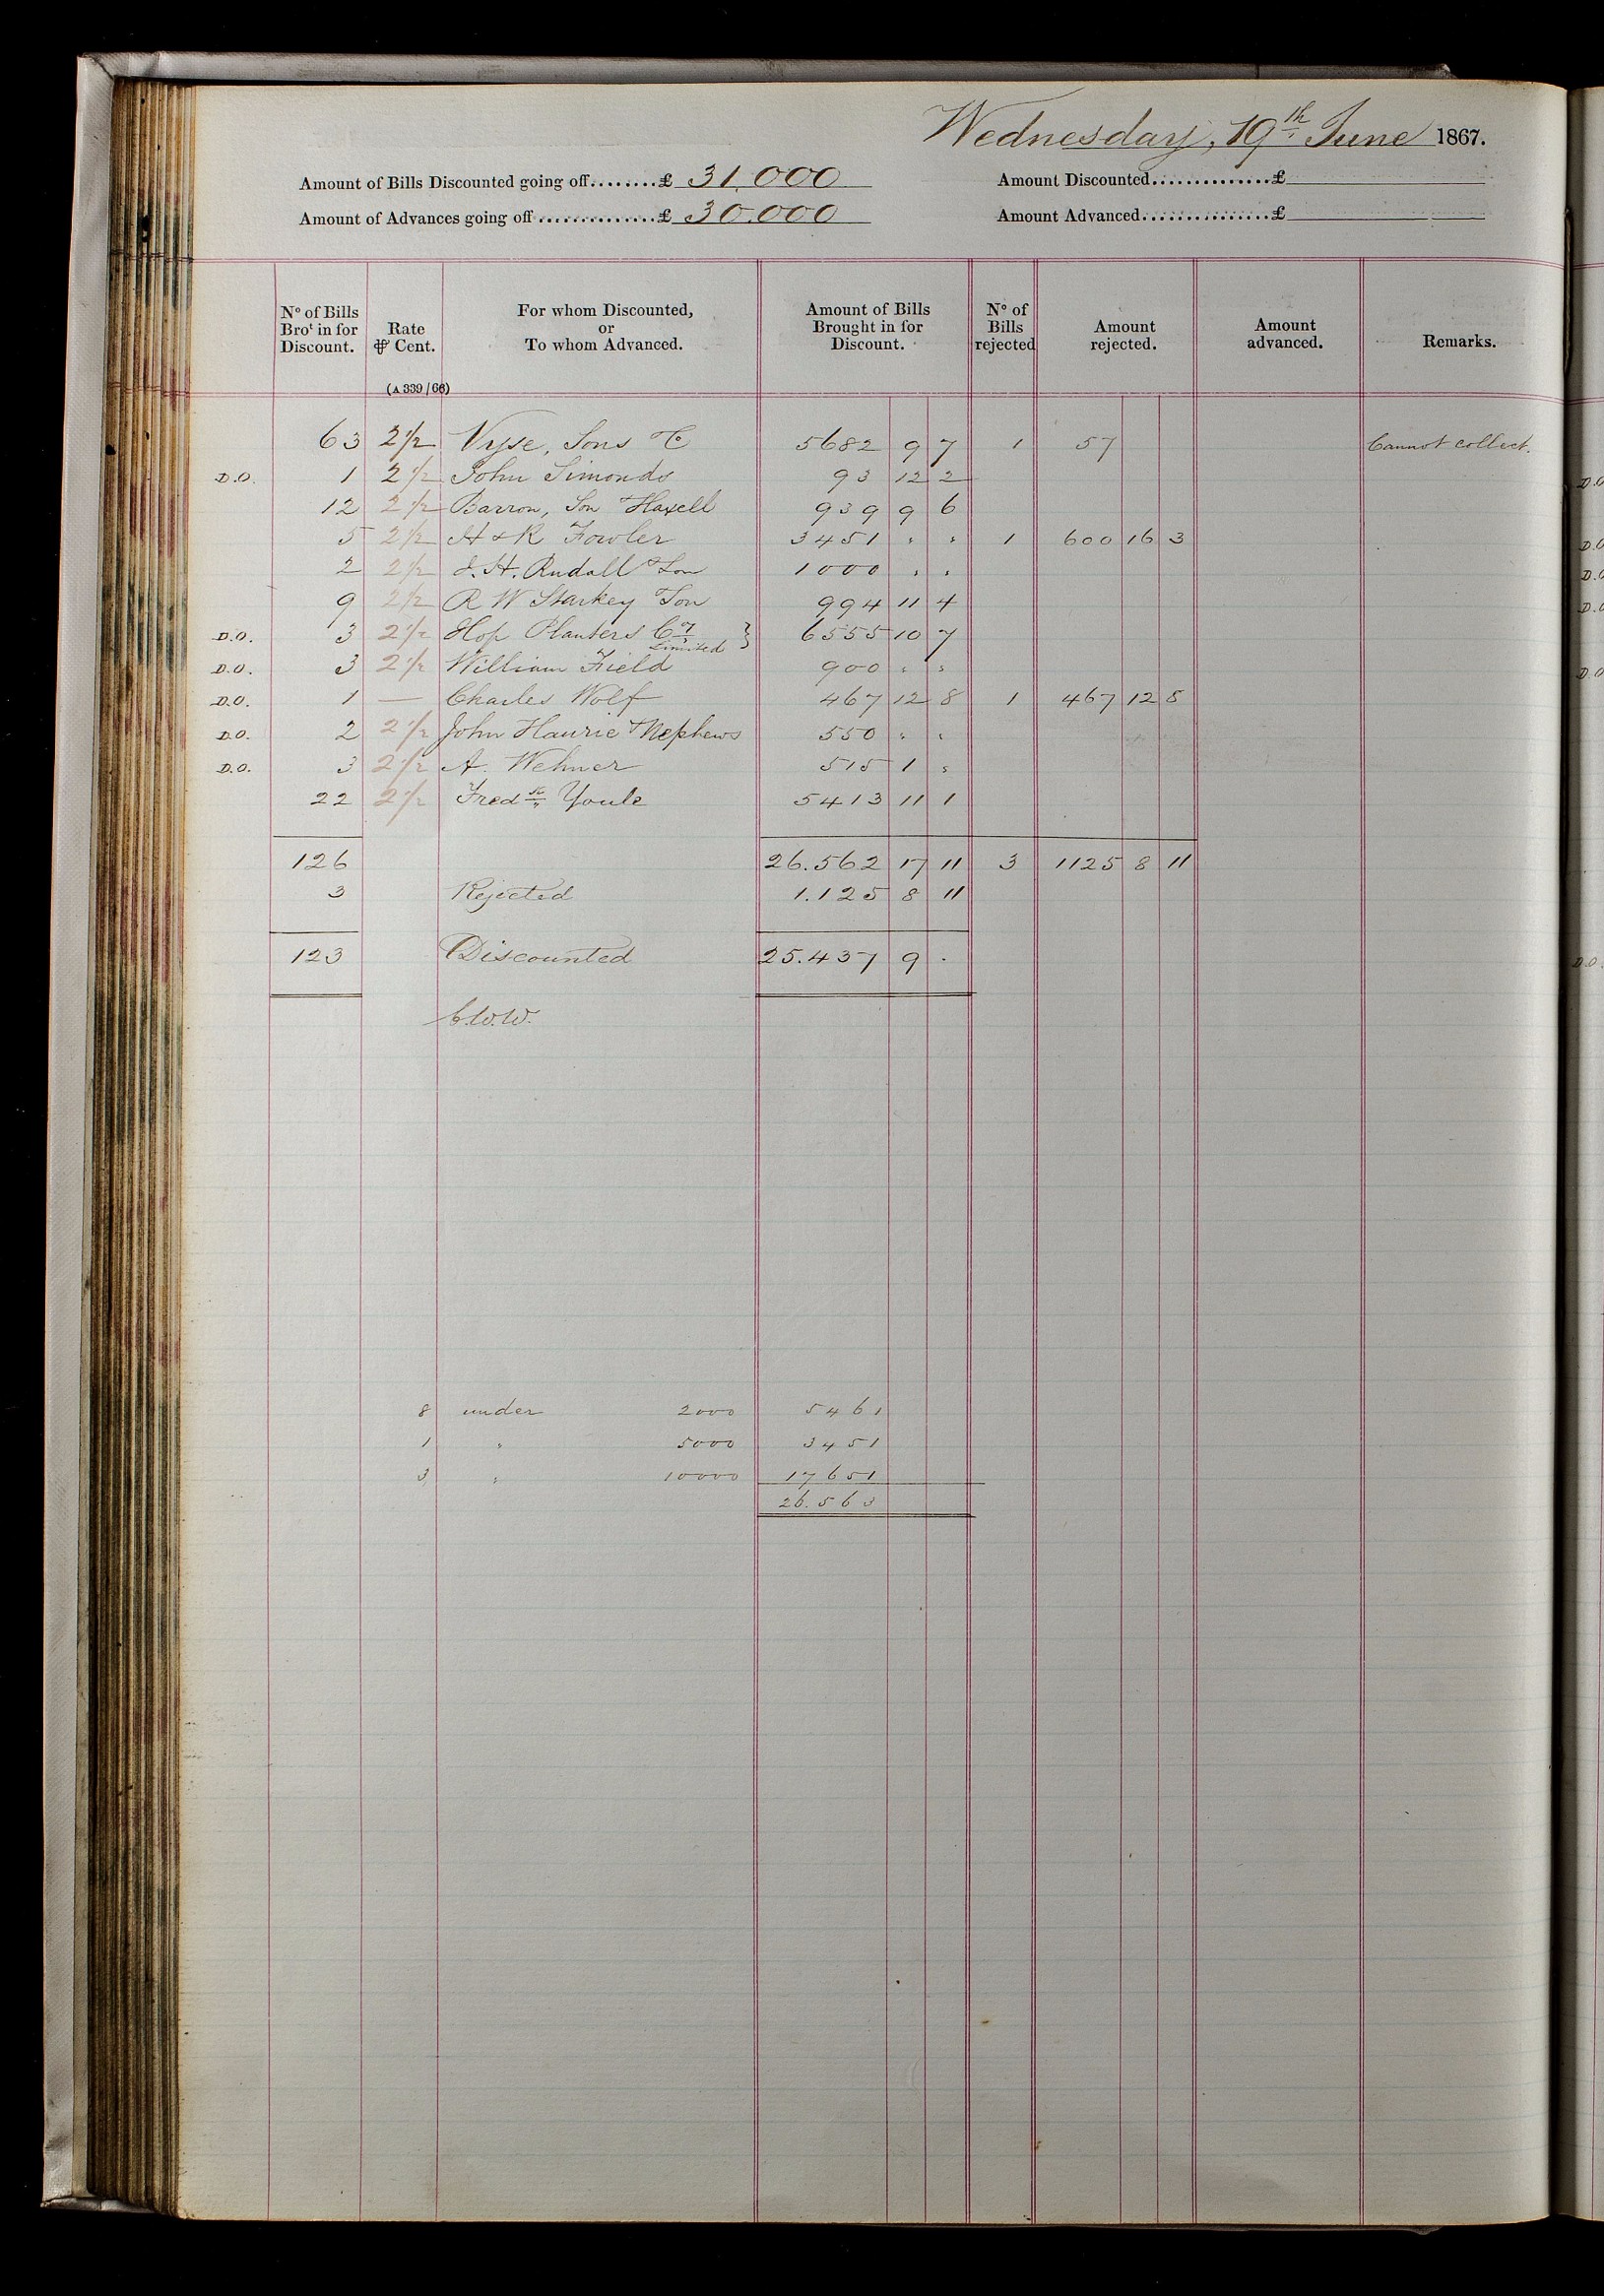 Wednesday, 19th June 1867.
Amount of Bills Discounted going off........£ 31,000 Amount Discounted..............£
Amount of Advances going off..............£ 30.000 Amount Advanced................£
No of Bills Brot in for Discount. Rate ⅌ Cent. For whom Discounted, or To whom Advanced. Amount of Bills Brought in for Discount. No of Bills rejected Amount rejected. Amount advanced. Remarks.
(A 339/66)
63 2½ Vyse, Sons & Co 5682 9 7 1 57 Cannot collect.
D.O. 1 2½ John Simonds 93 12 2
12 2½ Barron, Son & Haxell 939 9 6
5 2½ H & R Fowler 3451 " " 1 600 16 3
2 2½ J. H. Rudall & Son 1000 " "
9 2½ R W Starkey & Son 994 11 4
D.O. 3 2½ Hop Planters Coy Limited } 6555 10 7
D.O. 3 2½ William Field 900 " "
D.O. 1 — Charles Wolf 467 12 8 1 467 12 8
D.O. 2 2½ John Haurie & Nephews 550 " "
D.O. 3 2½ A. Wehner 515 1 "
22 2½ Fredk Youle 5413 11 1
126 26.562 17 11 3 1125 8 11
3 Rejected 1.125 8 11
123 Discounted 25.437 9 .
C.W.W.
8 under 2000 5461
1 " 5000 3451
3 " 10000 17651
26.563